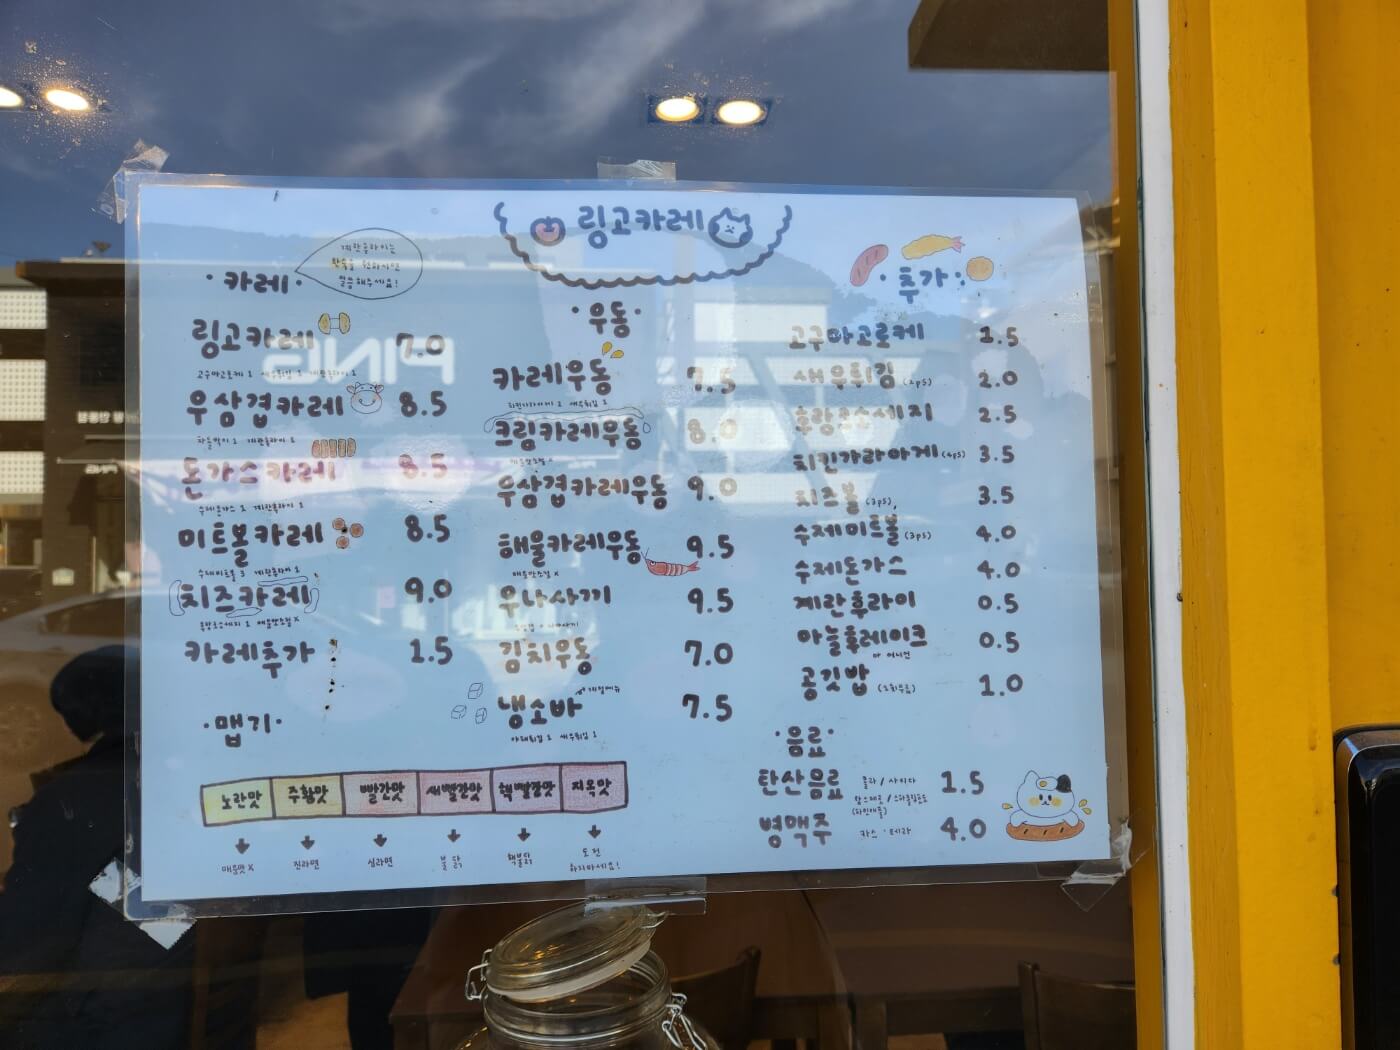 링고카레
·카레·
계란후라이는
완숙을 원하시면
말씀해주세요!
링고카레 7.0
고구마고로케 1 새우튀김 1 계란후라이 1
우삼겹카레 8.5
차돌박이 1 계란후라이 1
돈가스카레 8.5
수제돈가스 1 계란후라이 1
미트볼카레 8.5
수제미트볼 3 계란후라이 1
치즈카레 9.0
후랑크소세지 1 매운맛조절 X
카레추가 1.5
·맵기·
노란맛 주황맛 빨간맛 새빨간맛 핵빨간맛 지옥맛
매운맛 X 진라면 신라면 불닭 핵불닭 도전
하지마세요!
·우동·
카레우동 7.5
치킨가라아게 2 새우튀김 1
크림카레우동 8.0
매운맛조절 X
우삼겹카레우동 9.0
해물카레우동 9.5
매운맛조절 X
우나사끼 9.5
김치우동 7.0
계절메뉴
냉소바 7.5
야채튀김 1 새우튀김 1
·추가·
고구마고로케 1.5
새우튀김 (2ps) 2.0
후랑크소세지 2.5
치킨가라아게 (4ps) 3.5
치즈볼 (3ps) 3.5
수제미트볼 (3ps) 4.0
수제돈가스 4.0
계란후라이 0.5
마늘후레이크 0.5
공깃밥 1.0
·음료·
탄산음료 콜라 / 사이다 1.5
(파인애플)
병맥주 카스 · 테라 4.0
PING